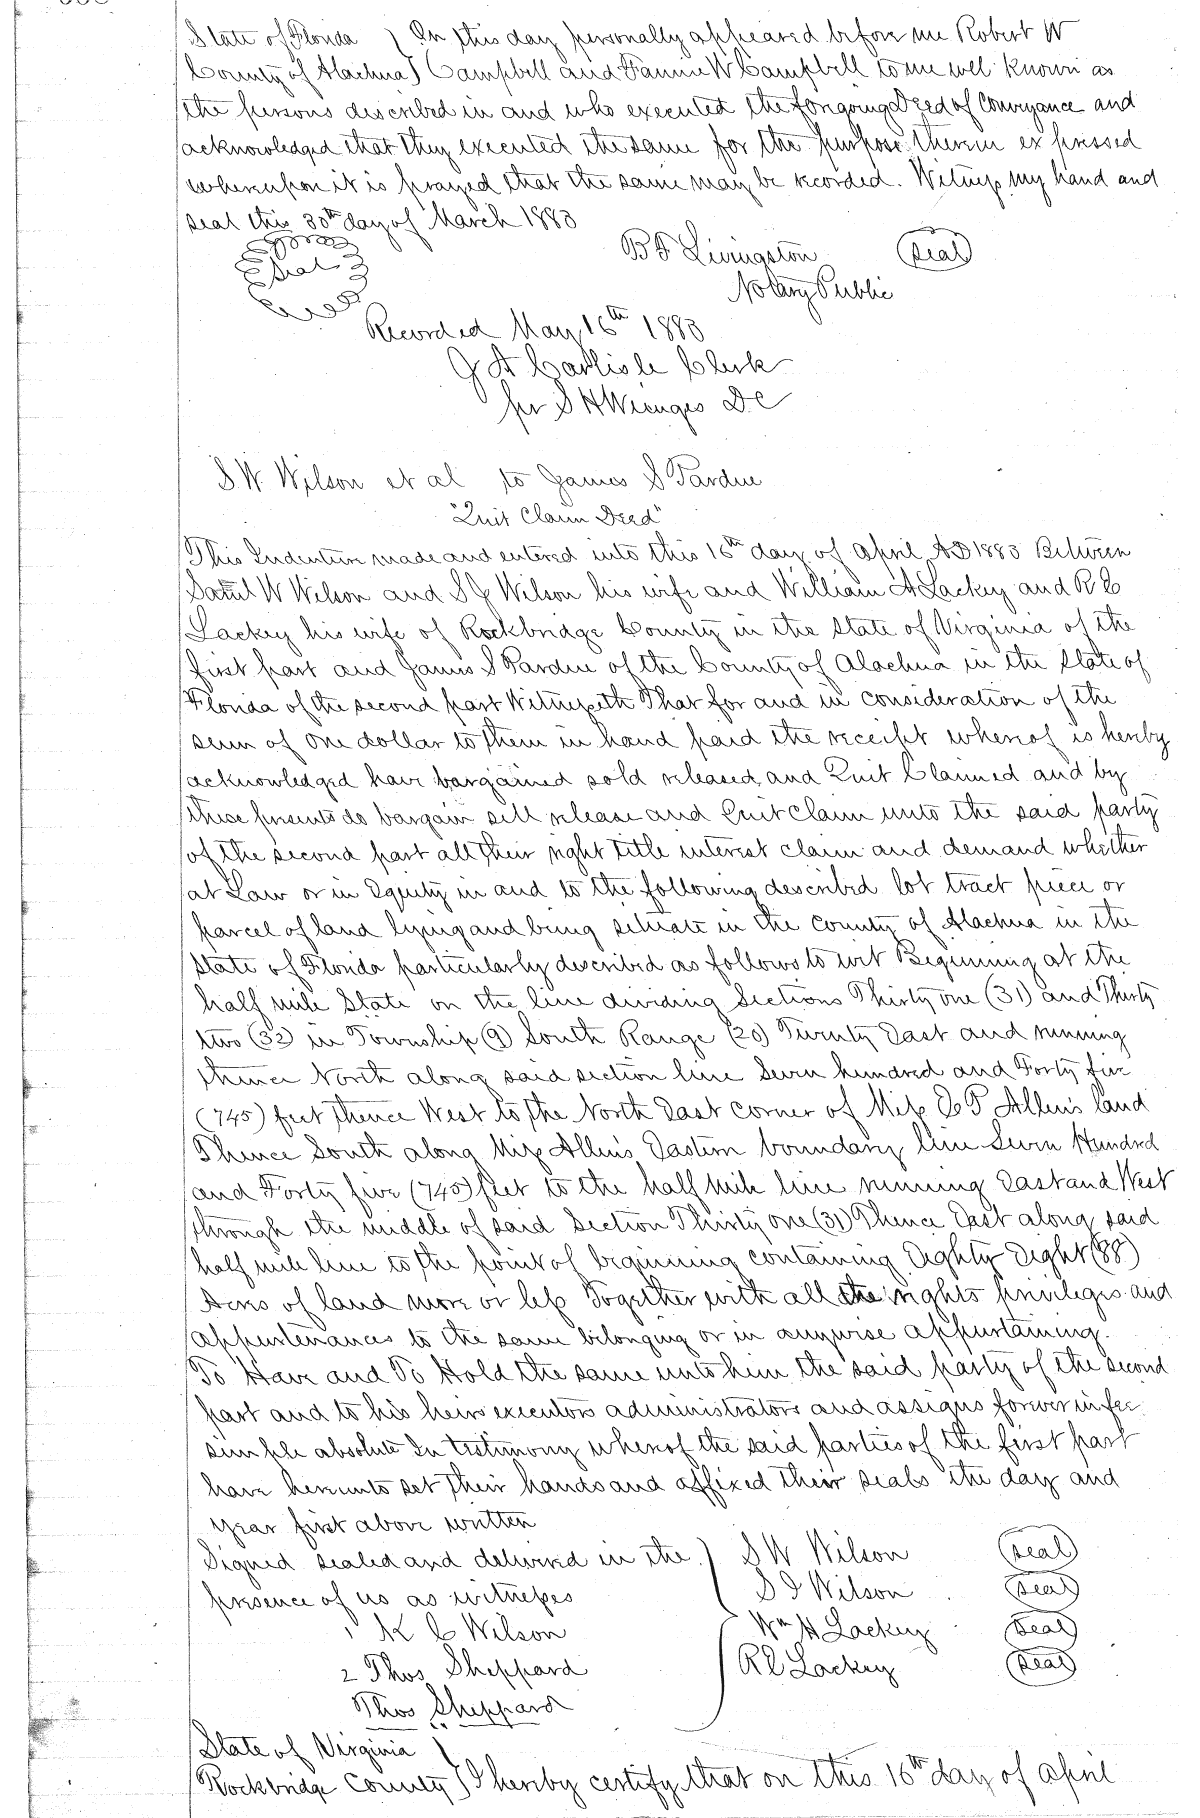 State of Florida ) On this day personally appeared before me Robert W
County of Alachua ) Campbell and Fannie W Campbell to me well known as
the persons described in and who executed the foregoing Deed of Conveyance and
acknowledged that they executed the same for the purpose therein expressed
whereupon it is prayed that the same may be recorded. Witness my hand and
seal this 30th day of March 1883
Seal
B F Livingston (Seal)
Notary Public
Recorded May 16th 1883
J A Carlisle Clerk
per S H Wienges DC
S W Wilson et al to James S Pardue
"Quit Claim Deed"
This Indenture made and entered into this 16th day of April AD 1883 Between
Saml W Wilson and S J Wilson his wife and William H Lackey and R E
Lackey his wife of Rockbridge County in the State of Virginia of the
first part and James S Pardue of the County of Alachua in the State of
Florida of the second part Witnesseth That for and in consideration of the
sum of one dollar to them in hand paid the receipt whereof is hereby
acknowledged have bargained sold released, and Quit Claimed and by
these presents do bargain sell release and Quit Claim unto the said party
of the second part all their right title interest claim and demand whether
at Law or in Equity in and to the following described lot tract piece or
parcel of land lying and being situate in the County of Alachua in the
State of Florida particularly described as follows to wit Beginning at the
half mile State on the line dividing Sections Thirty one (31) and Thirty
two (32) in Township (9) South Range (20) Twenty East and running
thence North along said section line Seven hundred and Forty five
(745) feet thence West to the North East corner of Miss E P Allen's land
Thence South along Miss Allen's Eastern boundary line Seven Hundred
and Forty five (745) feet to the half mile line running East and West
through the middle of said Section Thirty one (31) Thence East along said
half mile line to the point of beginning containing Eighty Eight (88)
Acres of land more or less Together with all the rights privileges and
appurtenances to the same belonging or in anywise appurtaining.
To Have and To Hold the same unto him the said party of the second
part and to his heirs executors administrators and assigns forever in fee
simple absolute In testimony whereof the said parties of the first part
have hereunto set their hands and affixed their seals the day and
year first above written
Signed sealed and delivered in the ) S W Wilson (Seal)
presence of us as witnesses S J Wilson (Seal)
1 K C Wilson Wm H Lackey (Seal)
2 Thos Sheppard R E Lackey (Seal)
Thos Sheppard
State of Virginia )
Rockbridge County ) I hereby certify that on this 16th day of April